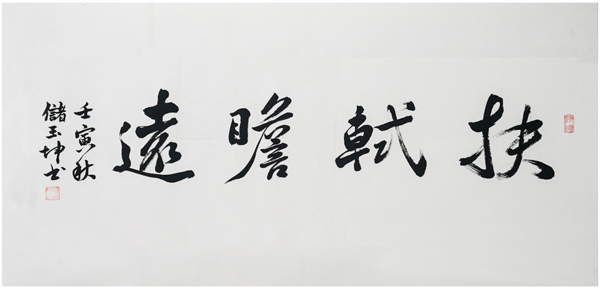 扶軾瞻遠
壬寅秋
儲玉坤書